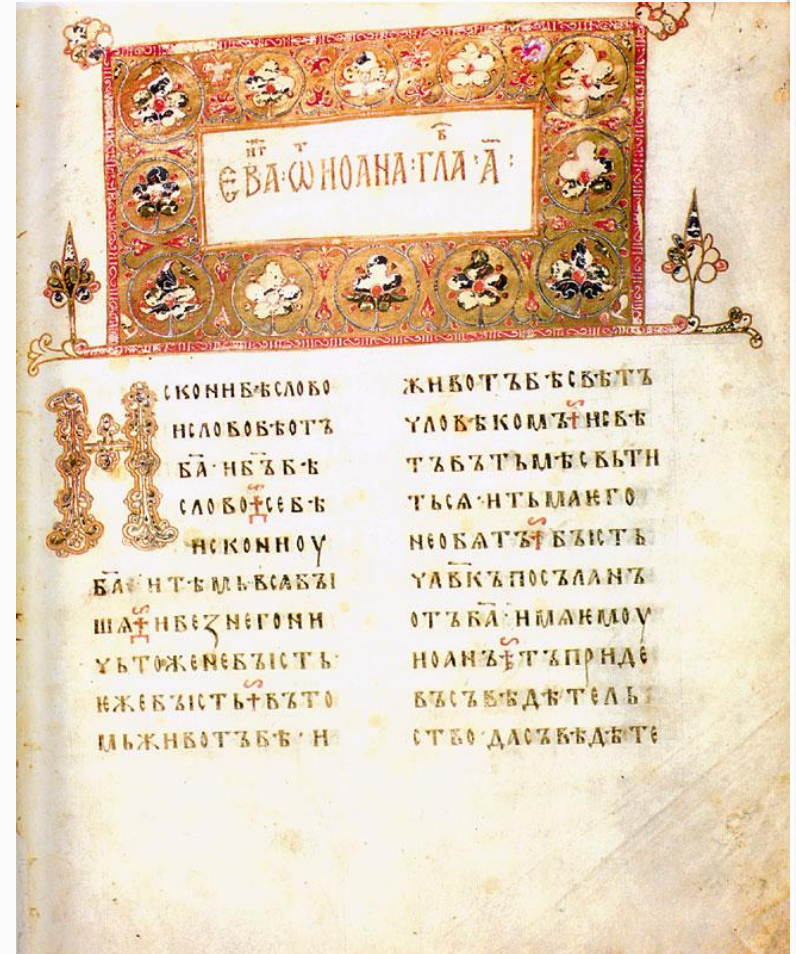 ЕВАНГ҃·Ѿ ИОАНА·ГЛАВ҃·А҃:
ИСКОНИ БѢ СЛОВО
И СЛОВО БѢ ОТЪ
Б҃А· И Б҃Ъ БѢ
СЛОВО СЕ БѢ
ИСКОНИ ОУ
Б҃А· И ТѢМЬ ВСЯ БЫ
ШѦ И БЕЗ НЕГО НИ
ЧЬТОЖЕ НЕ БЪІСТЬ·
ѤЖЕ БЪІСТЬ ВЪ ТО
МЬ ЖИВОТЪ БѢ· И
ЖИВОТЪ БѢ СВѢТЪ
ЧЛОВѢКОМЪ И СВѢ
ТЪ ВЪ ТЬМѢ СВЬТИ
ТЬСѦ· И ТЬМА ѤГО
НЕ ОБѦТЪ БЪІСТЬ
ЧЛ҃ВКЪ ПОСЪЛАНЪ
ОТЪ Б҃А· ИМѦ ѤМОУ
ИОАНЪ ТЪ ПРИДЕ
ВЪ СЪВѢДѢТЕЛЬ
СТВО· ДА СЪВѢДѢТЕ